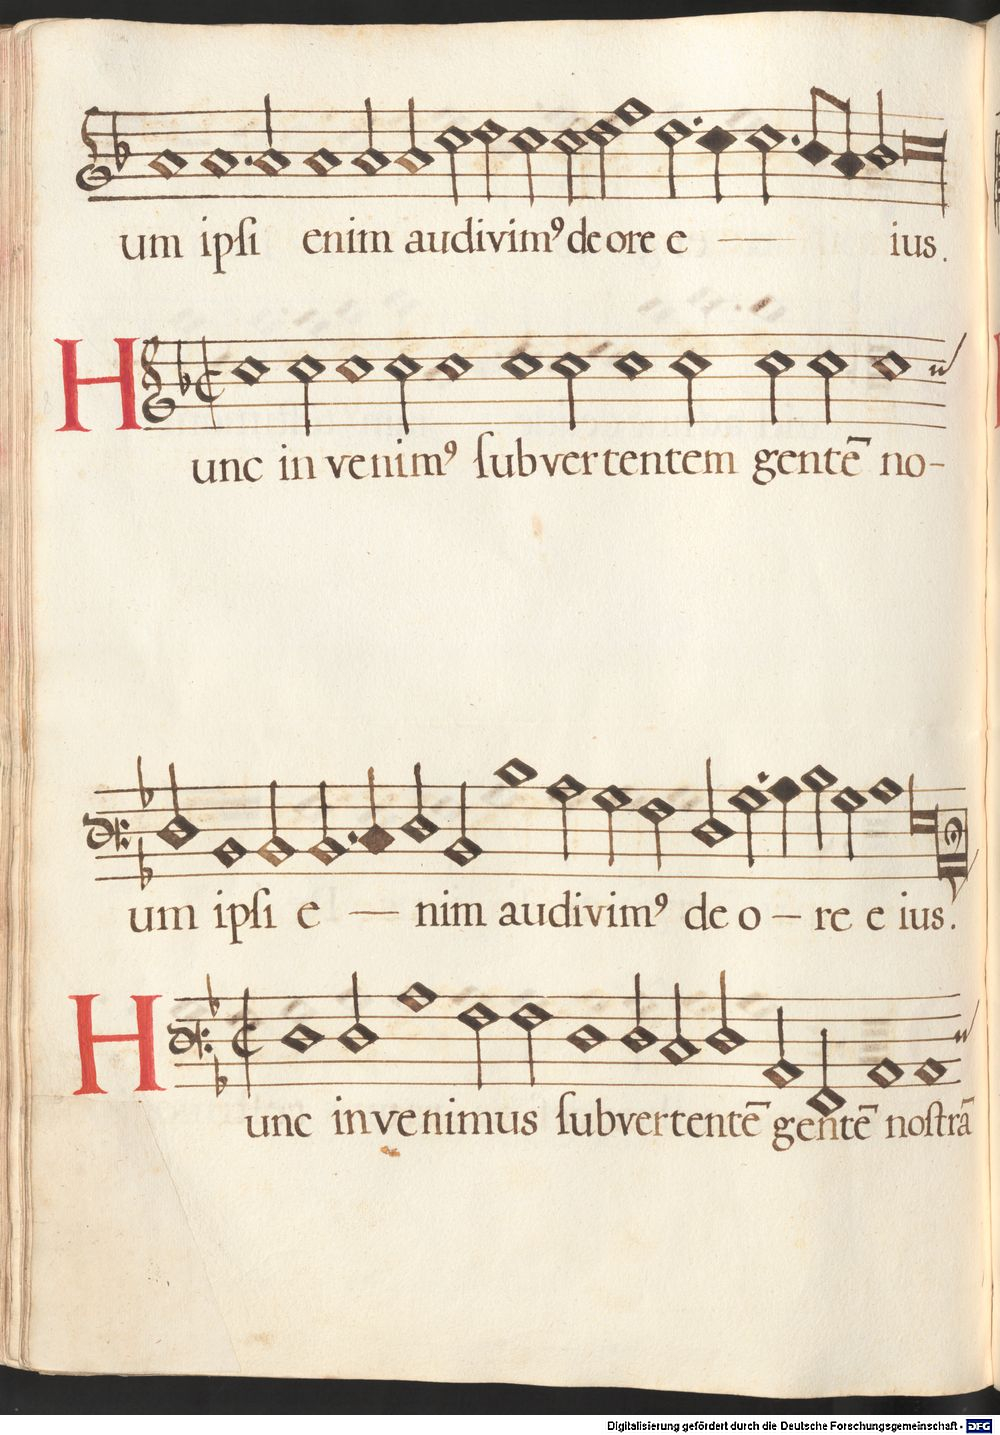 um ipſi enim audivimꝰ de ore e — ius.
Hunc invenimꝰ ſubvertentem gentē no-
um ipſi e — nim audivimꝰ de o – re e ius.
Hunc invenimus ſubvertentē gentē noſtrā
Digitalisierung gefördert durch die Deutsche Forschungsgemeinschaft - DFG